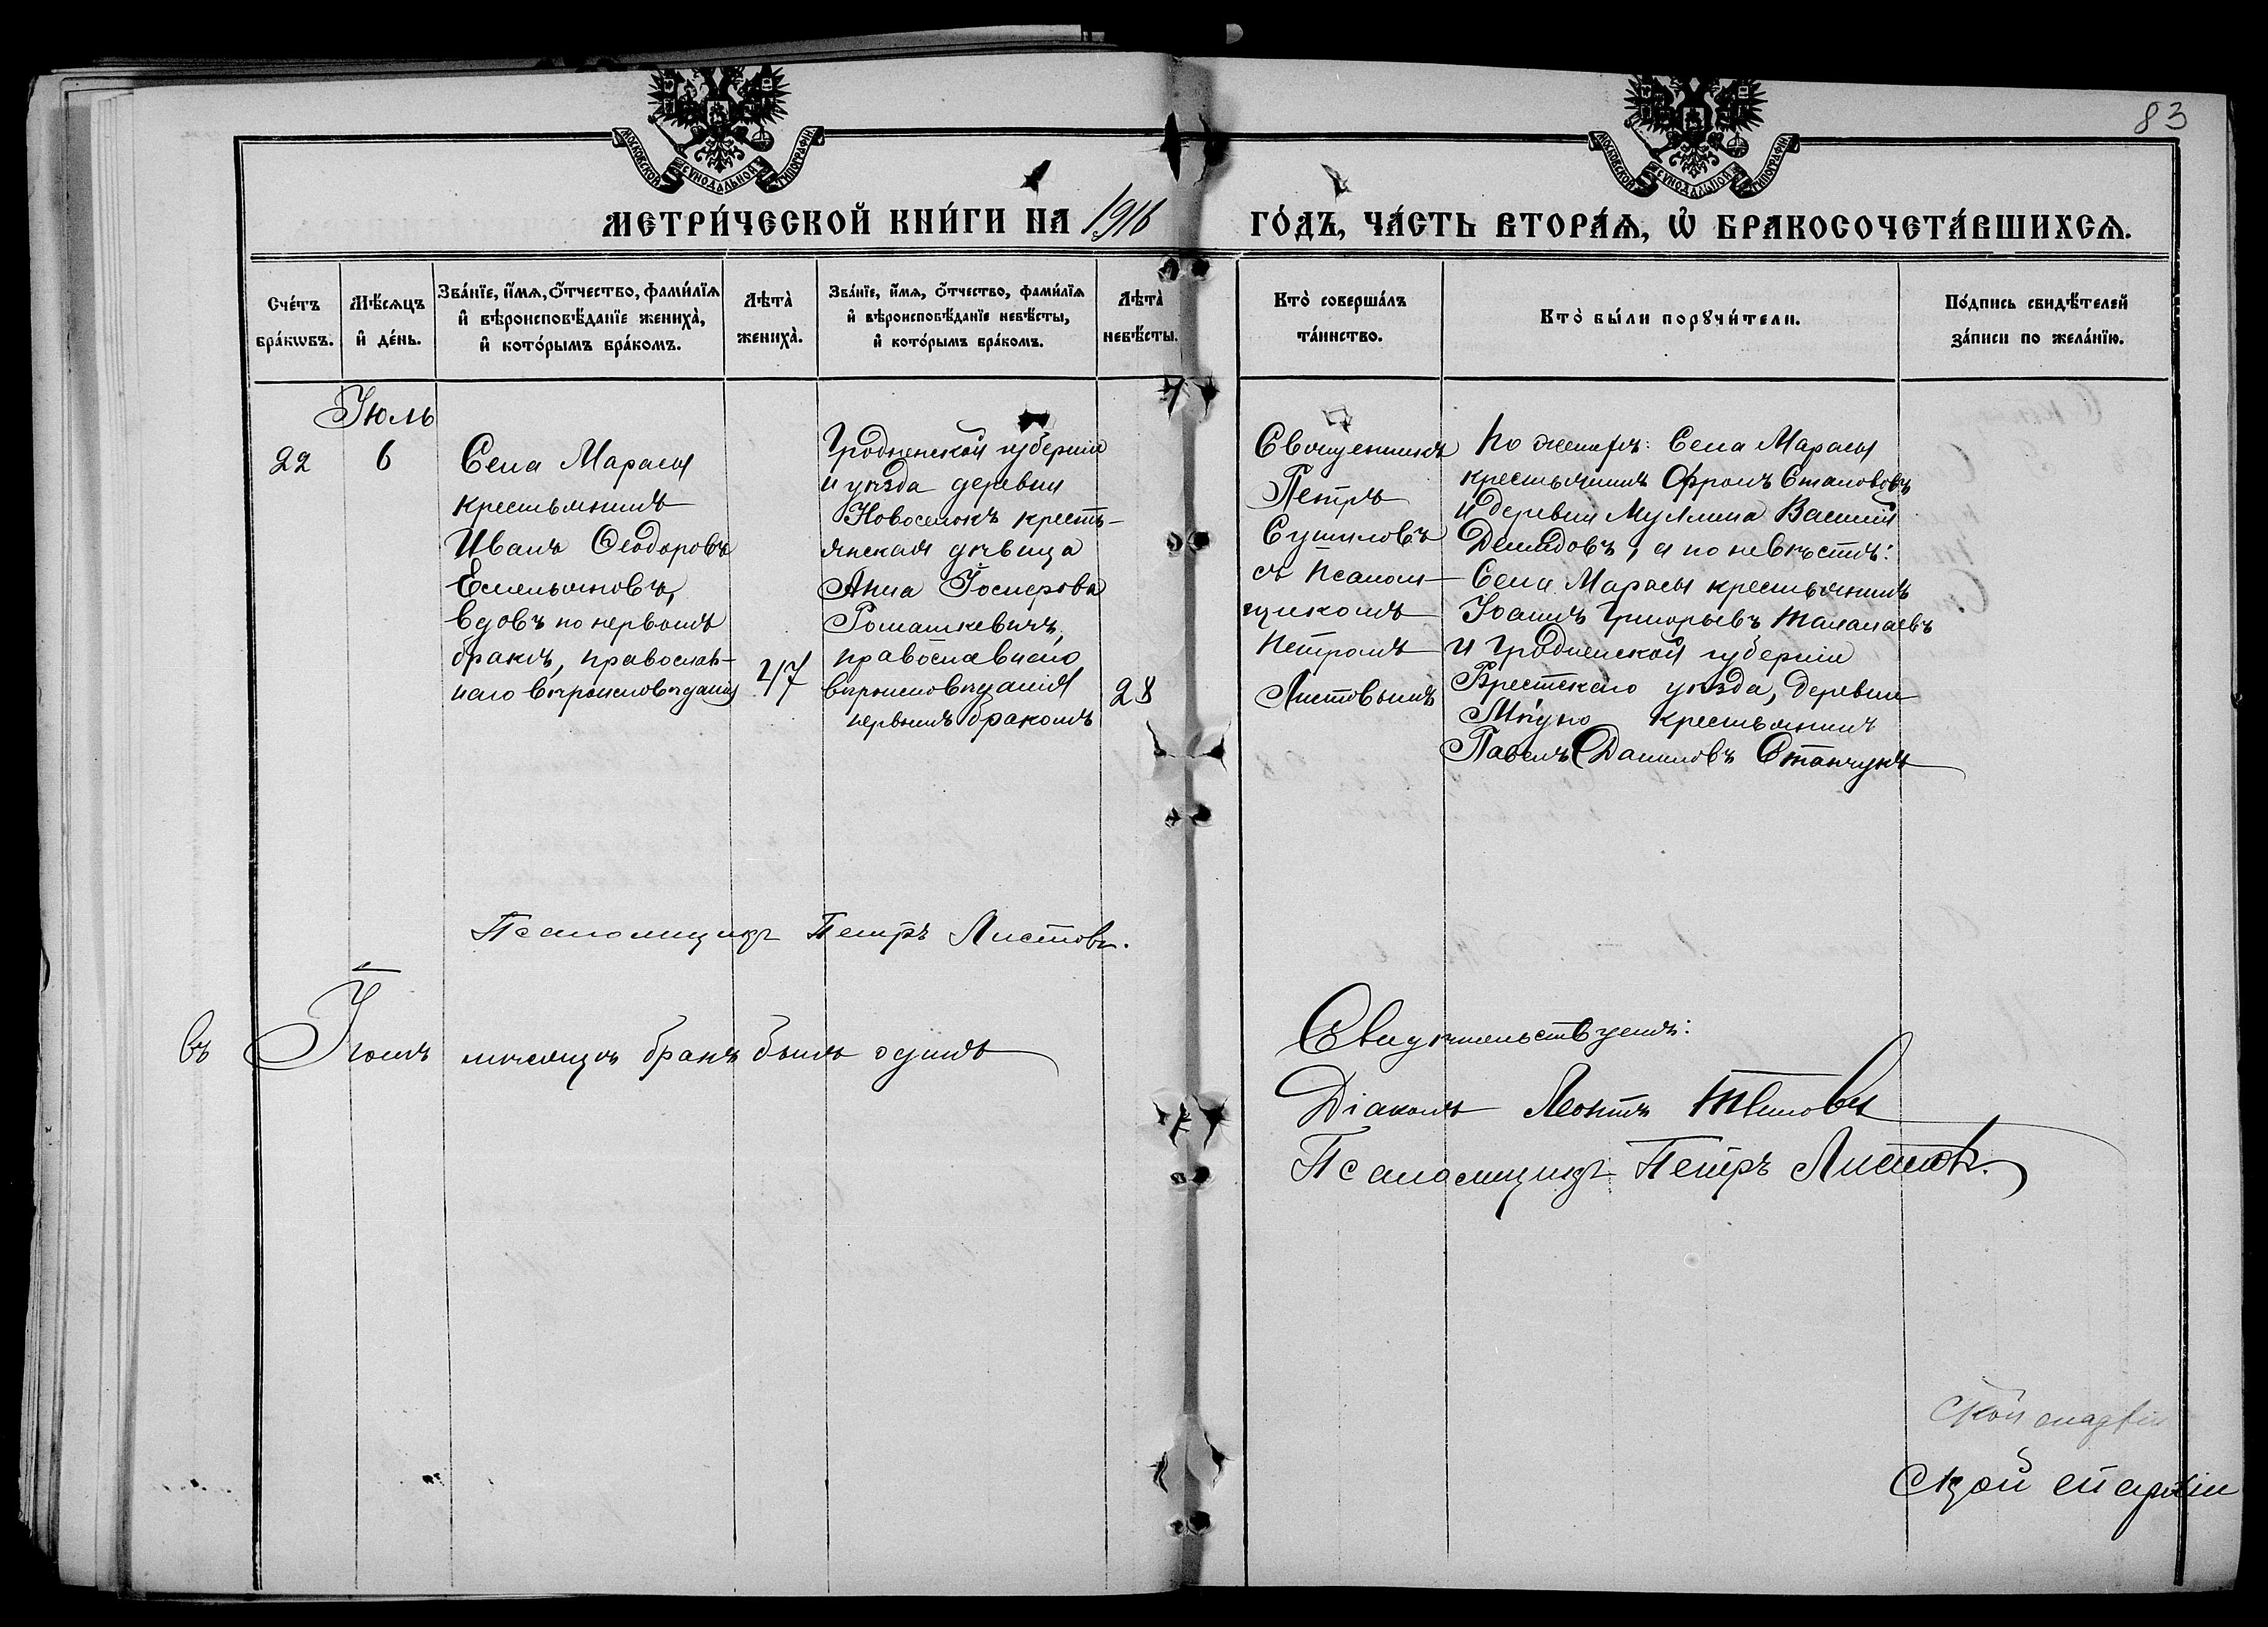 83
МОСКОВСКОЙ СѴНОДАЛЬНОЙ ТИПОГРАФІИ
МОСКОВСКОЙ СѴНОДАЛЬНОЙ ТИПОГРАФІИ
МЕТРИ́ЧЕСКОЙ КНИ́ГИ НА 1916
ГО́ДЪ, ЧА́СТЬ ВТОРА́Ѧ, Ѡ҆ БРАКОСОЧЕТА́ВШИХСѦ.
Сче́тъ
бра́кѡвъ.
Мѣ́сѧцъ
и҆ де́нь.
Зва́нїе, и҆́мѧ, ѻ҆́тчество, фами́лїѧ
и҆ вѣроисповѣ́данїе жениха̀,
и҆ кото́рымъ бра́комъ.
Лѣта̀
жениха̀.
Зва́нїе, и҆́мѧ, ѻ҆́тчество, фами́лїѧ
и҆ вѣроисповѣ́данїе невѣ́сты,
и҆ кото́рымъ бра́комъ.
Лѣта̀
невѣ́сты.
Кто̀ соверша́лъ
та́инство.
Кто̀ бы́ли порꙋчи́тели.
По́дпись свидѣ́телей
за́писи по жела́нїю.
Іюль
22
6
Села Марасы
крестьянинъ
Иванъ Ѳеодоровъ
Емельяновъ,
вдовъ по первомъ
бракѣ, православ-
наго вѣроисповѣданія
47
Гродненской губерніи
и уѣзда деревни
Новоселокъ кресть-
янская дѣвица
Анна
Ромашкевичъ,
православнаго
вѣроисповѣданія
первымъ бракомъ
28
Священникъ
Петръ
Сушиловъ
съ псалом-
щикомъ
Петромъ
Листовымъ
По женихѣ: Села Марасы
крестьянинъ Фролъ
и деревни Муллина Василій
Демидовъ, а по невѣстѣ:
Села Марасы крестьянинъ
Іоаннъ Григорьевъ Маламаевъ
и Гродненской губерніи
Брестскаго уѣзда, деревни
крестьянинъ
Павелъ Даниловъ Станчукъ
Псаломщикъ Петръ Листовъ.
Въ Іюлѣ мѣсяцѣ бракъ былъ одинъ
Свидѣтельствуемъ:
Діаконъ Леонтъ
Псаломщикъ Петръ Листовъ.
ской епархіи
ской епархіи